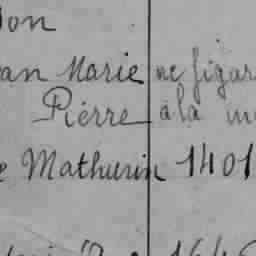 an Marie ne figar
Pierre à la m
e Mathurin 1401